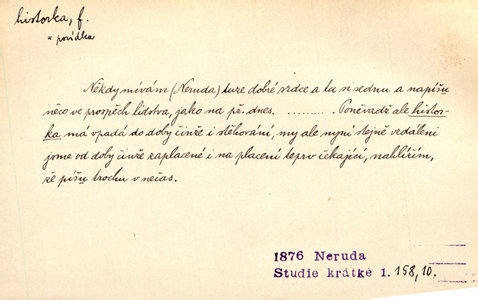 historka, f.
* povídka
Někdy mívám (Neruda) tuze dobré srdce a tu si sednu a napíšu
něco ve prospěch lidstva, jako na př. dnes. .......... Poněvadž ale histor-
ka má vpadá do doby činže i stěhování, my ale nyní stejně vzdáleni
jsme od doby činže zaplacené i na placení teprv čekající, nahlížím,
že píšu trochu v nečas.
1876 Neruda
Studie krátké 1. 158, 10.